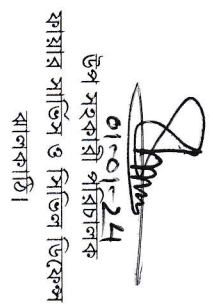 01-01-24
উপ সহকারী পরিচালক
ফায়ার সার্ভিস ও সিভিল ডিফেন্স
ঝালকাঠি।